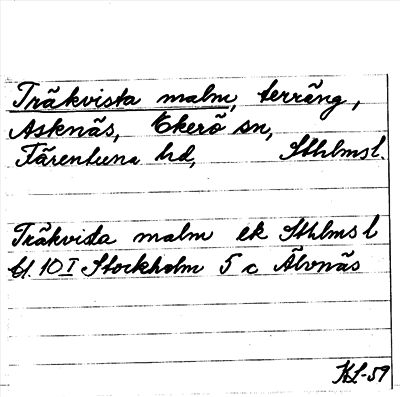 Träkvista malm, terräng,
Asknäs, Ekerö sn,
Färentuna hd, Sthlms l.
Träkvista malm ek Sthlms l
bl. 10 I Stockholm 5 c Älvnäs
KL-59